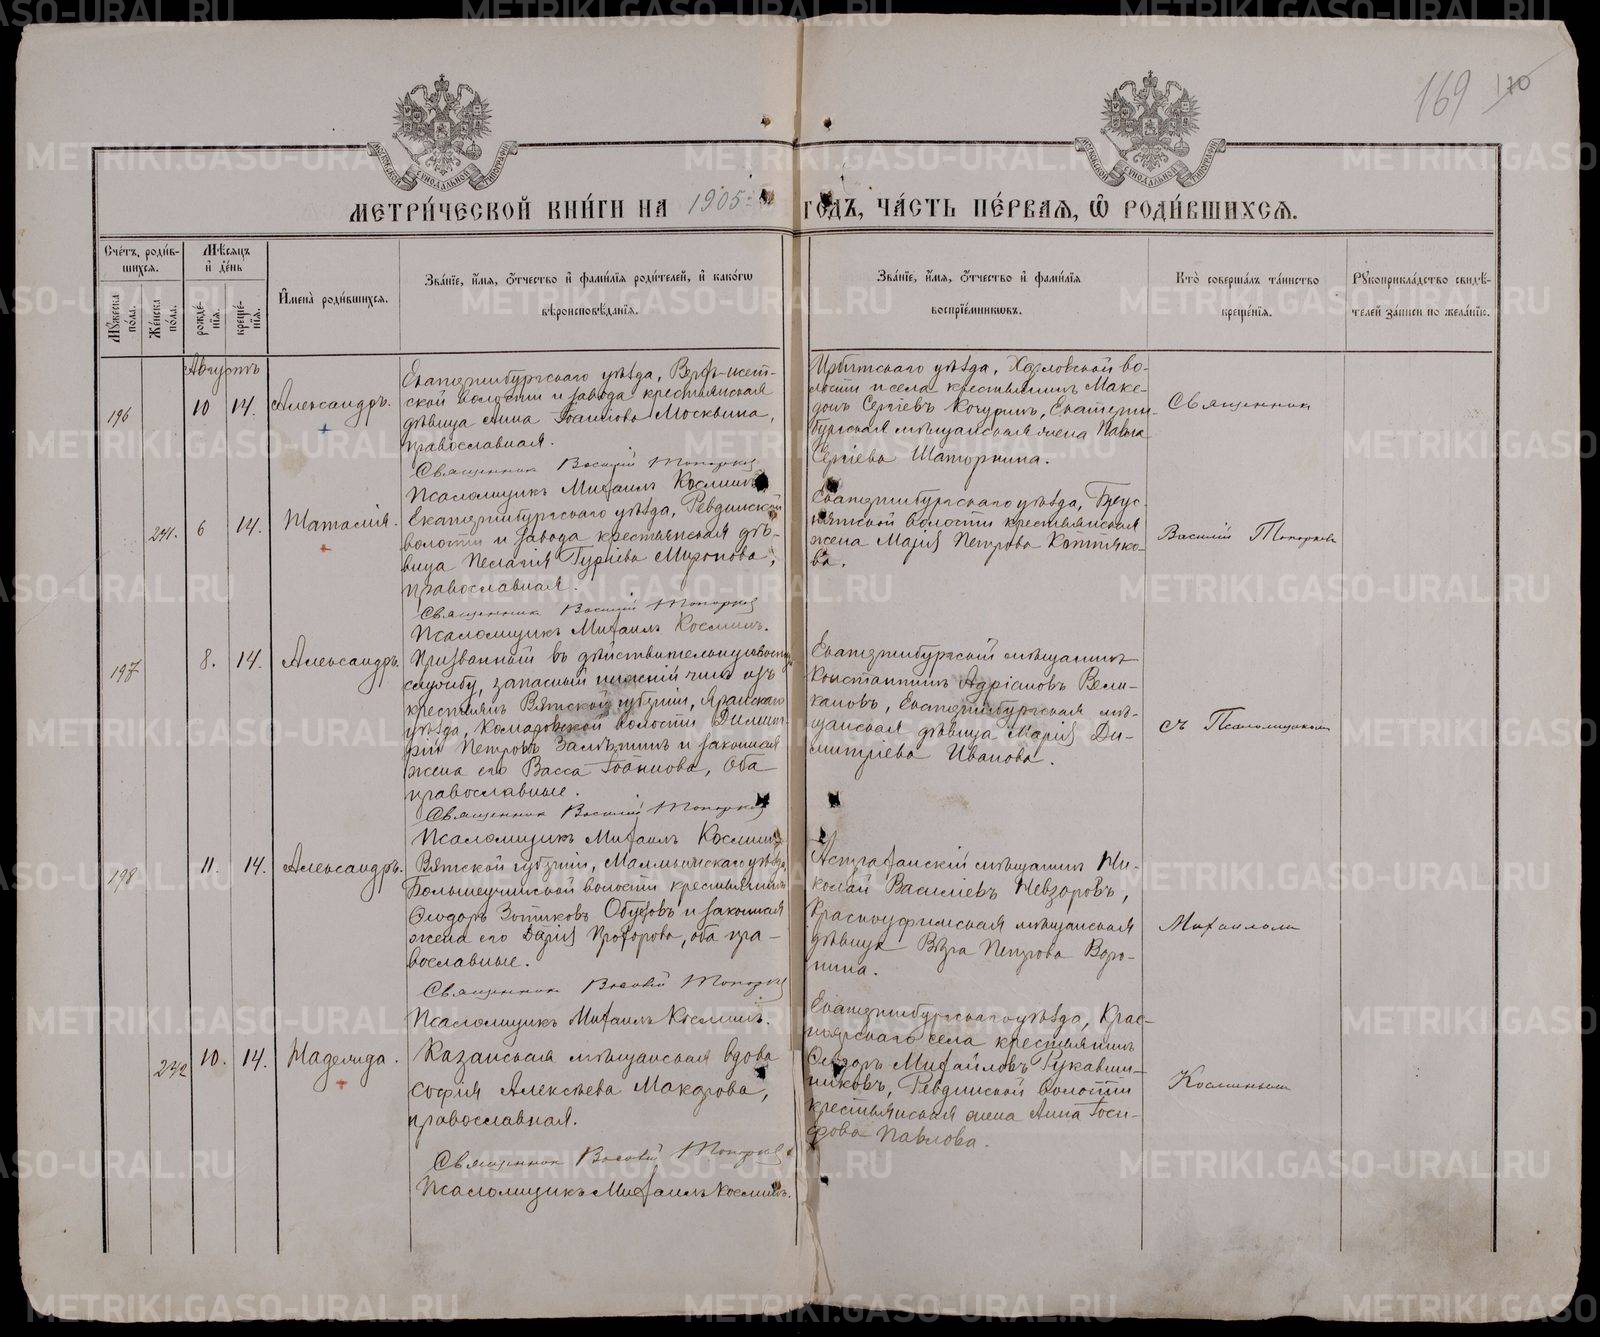 169 170
МОСКОВСКОЙ СѴНОДАЛЬНОЙ ТИПОГРАФІИ
МОСКОВСКОЙ СѴНОДАЛЬНОЙ ТИПОГРАФІИ
МЕТРИ́ЧЕСКОЙ КНИ́ГИ НА 1905 ГОДЪ, ЧА́СТЬ ПЕ́РВАЯ, Ѡ РОДИ́ВШИХСЯ.
Сче́тъ роди́в-
шихся.
Мꙋ́жеска по́ла.
Же́нска по́ла.
Мѣ́сяцъ и҆ де́нь
рожде́-
нїя.
креще́-
нїя.
И҆мена̀ роди́вшихся.
Зва́нїе, и҆́мя, ѻ҆́тчество и҆ фами́лїя роди́телей, и҆ како́гѡ
вѣроисповѣ́данїя.
Зва́нїе, и҆́мя, ѻ҆́тчество и҆ фами́лїя
воспрїе́мникѡвъ.
Кто̀ соверша́лъ та́инство
креще́нїя.
Рꙋкоприкла́дство свидѣ́-
телей за́писи по жела́нїю.
Августъ
196 10 14. Александръ.
Екатеринбургскаго уѣзда, Верхъ-исет-
ской волости и завода крестьянская
дѣвица Анна Іоаннова Москвина,
православная.
Священникъ Василій Топорковъ
Псаломщикъ Михаилъ Косминъ
Ирбитскаго уѣзда, во-
лости и села крестьянинъ Маке-
донъ Сергіевъ Кочуринъ, Екатерин-
бургская мѣщанская жена
Сергіева
Священник
241. 6 14. Наталія.
Екатеринбургскаго уѣзда, Ревдинской
волости и завода крестьянская дѣ-
вица Пелагія Гуріева Миронова,
православная.
Священникъ Василій Топорковъ
Псаломщикъ Михаилъ Косминъ.
Екатеринбургскаго уѣзда, Брус-
нятской волости крестьянская
жена Марія Петрова Коптяко-
ва.
Василій Топорков
197 8. 14. Александръ.
Призванный въ дѣйствительную военную
службу, запасный нижній чинъ изъ
крестьянъ Вятской губерніи, Яранскаго
уѣзда, волости Димит-
рій Петровъ и законная
жена его Васса Іоаннова, оба
православные.
Священникъ Василій Топорковъ
Псаломщикъ Михаилъ Косминъ
Екатеринбургскій мѣщанинъ
Константинъ Адріановъ Вели-
кановъ, Екатеринбургская мѣ-
щанская дѣвица Марія Ди-
митріева Иванова.
съ Псаломщиком
198 11. 14. Александръ.
Вятской губерніи, Малмыжскаго уѣзда,
Большеучинской волости крестьянинъ
Ѳеодоръ Зотиковъ Обуховъ и законная
жена его Дарія Прохорова, оба пра-
вославные.
Священник Василій Топорков
Псаломщикъ Михаилъ Косминъ.
Астраханскій мѣщанинъ Ни-
колай Василіевъ Невзоровъ,
Красноуфимская мѣщанская
дѣвица Вѣра Петрова Воро-
нина.
Михаилом
242 10. 14. Надежда.
Казанская мѣщанская вдова
Софія Алексѣева Макарова,
православная.
Священник Василій Топорков
Псаломщикъ Михаилъ Косминъ.
Екатеринбургскаго уѣзда, Крас-
ноярскаго села крестьянинъ
Ѳеодоръ Михайловъ Рукавиш-
никовъ, Ревдинской волости
крестьянская жена Анна Іоси-
фова Павлова.
Косминым
METRIKI.GASO-URAL.RU